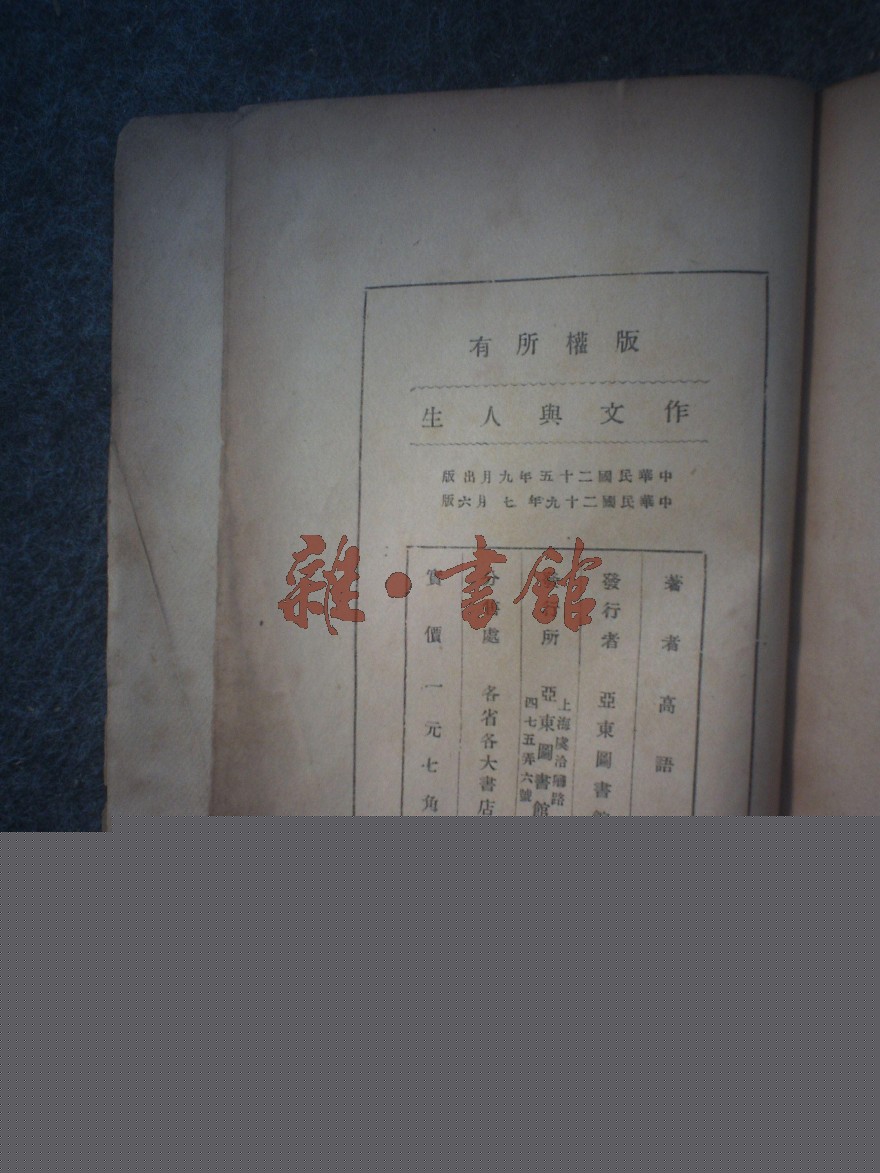 版權所有
作文與人生
中華民國二十五年九月出版
中華民國二十九年七月六版
著者 高語
發行者 亞東圖書館
發行所 上海虞洽卿路四七五弄六號 亞東圖書館
分售處 各省各大書店
實價 一元七角
雜·書館